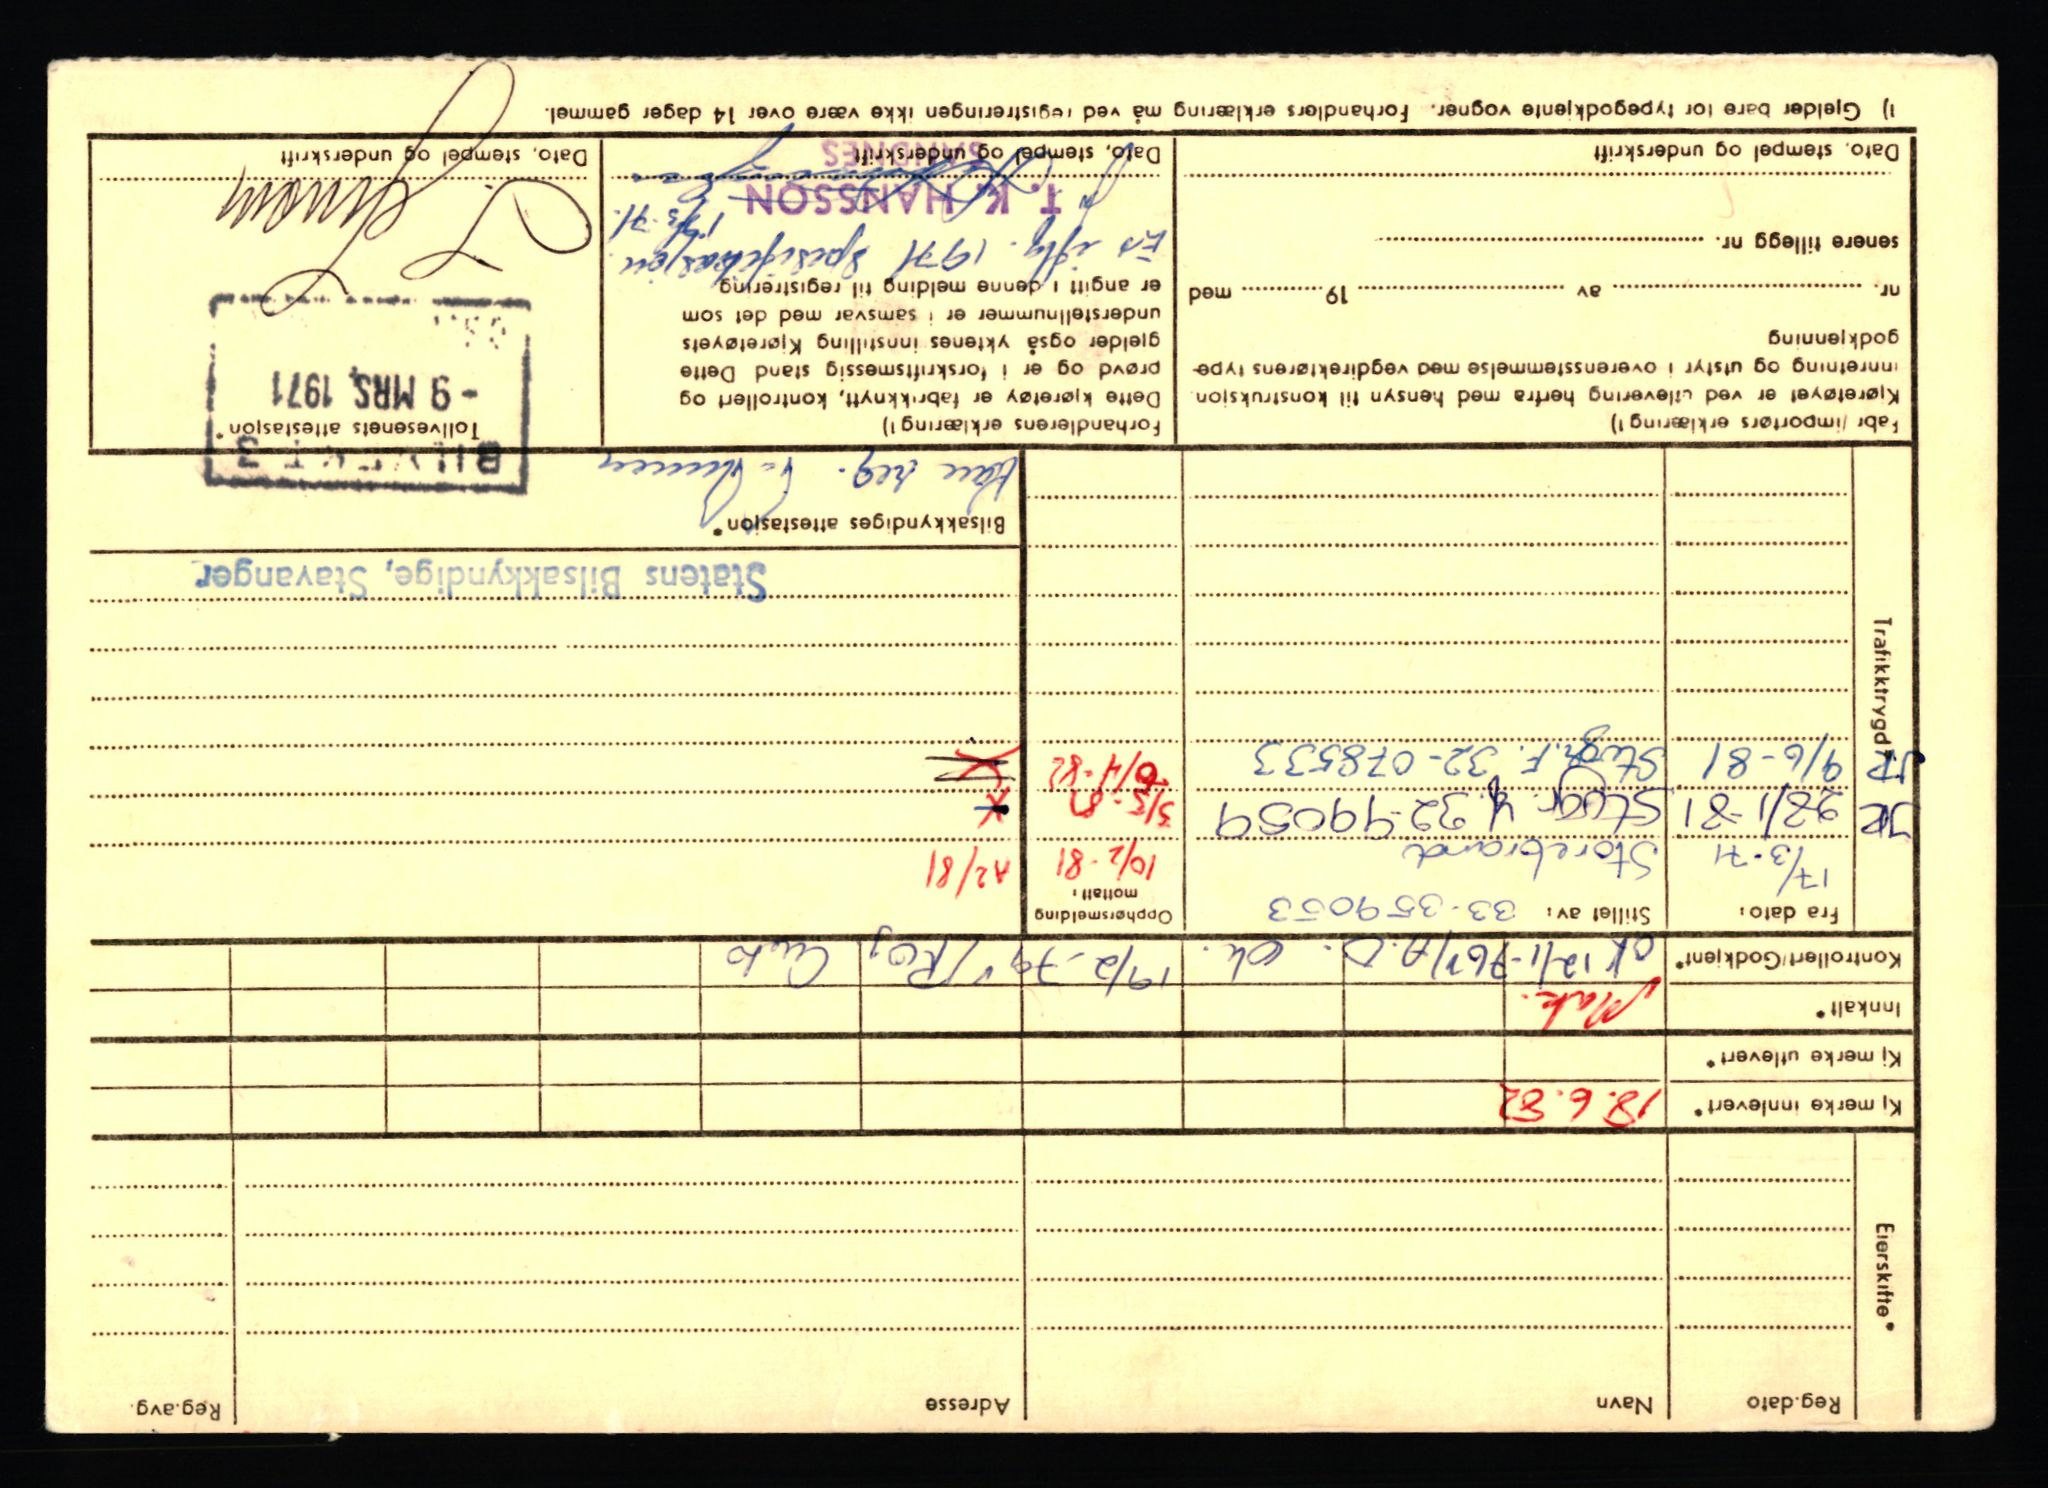 Reg.dato Navn Adresse Reg.avg.
Eierskifte*
Kj merke innlevert* 18.6.82
Kj merke utlevert*
Innkalt* Mak.
Kontrollert/Godkjent* ok 12/1-76 19/2-79
Trafikktrygd*
Fra dato: Stillet av: 33-359053 Opphørsmelding mottatt:
17/3-71 Storebrand 10/2-81 A2/81
JR 28/1-81 32-99059 3/5-81 K
JR 9/6-81 F. 32-078533 6/4-82 K
Statens Bilsakkyndige, Stavanger
Bilsakkyndiges attestasjon*
Kan reg.
Fabr/importørs erklæring 1)
Kjøretøyet er ved utlevering herfra med hensyn til konstruksjon
innretning og utstyr i overensstemmelse med vegdirektørens type-
godkjenning
nr. av 19 med
senere tillegg nr.
Dato, stempel og underskrift
Forhandlerens erklæring 1)
Dette kjøretøy er fabrikknytt, kontrollert og
prøvd og er i forskriftsmessig stand Dette
gjelder også yktenes innstilling Kjøretøyets
understellnummer er i samsvar med det som
er angitt i denne melding til registrering
Er iflg. 1971 spesifikasjon.
T. K. HANSSON
SANDNES
Dato, stempel og underskrift
Tollvesenets attestasjon*
- 9 MRS. 1971
Dato, stempel og underskrift
1) Gjelder bare for typegodkjente vogner. Forhandlers erklæring må ved registreringen ikke være over 14 dager gammel.